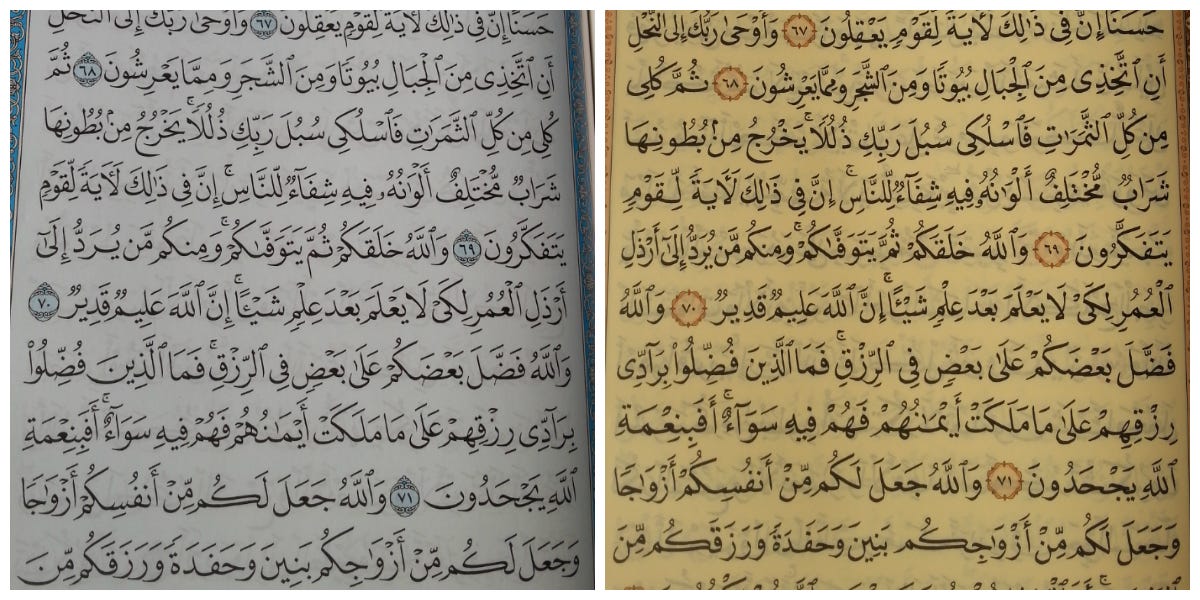 حَسَنًا إِنَّ فِي ذَٰلِكَ لَآيَةً لِّقَوْمٍ يَعْقِلُونَ ٦٧ وَأَوْحَىٰ رَبُّكَ إِلَى ٱلنَّحْلِ
أَنِ ٱتَّخِذِى مِنَ ٱلْجِبَالِ بُيُوتًا وَمِنَ ٱلشَّجَرِ وَمِمَّا يَعْرِشُونَ ٦٨ ثُمَّ
كُلِى مِن كُلِّ ٱلثَّمَرَٰتِ فَٱسْلُكِى سُبُلَ رَبِّكِ ذُلُلًا ۚ يَخْرُجُ مِنۢ بُطُونِهَا
شَرَابٌ مُّخْتَلِفٌ أَلْوَٰنُهُۥ فِيهِ شِفَآءٌ لِّلنَّاسِ ۚ إِنَّ فِى ذَٰلِكَ لَآيَةً لِّقَوْمٍ
يَتَفَكَّرُونَ ٦٩ وَٱللَّهُ خَلَقَكُمْ ثُمَّ يَتَوَفَّىٰكُمْ ۚ وَمِنكُم مَّن يُرَدُّ إِلَىٰٓ
أَرْذَلِ ٱلْعُمُرِ لِكَىْ لَا يَعْلَمَ بَعْدَ عِلْمٍ شَيْـًٔا ۚ إِنَّ ٱللَّهَ عَلِيمٌ قَدِيرٌ ٧٠
وَٱللَّهُ فَضَّلَ بَعْضَكُمْ عَلَىٰ بَعْضٍ فِى ٱلرِّزْقِ ۚ فَمَا ٱلَّذِينَ فُضِّلُوا۟
بِرَآدِّى رِزْقِهِمْ عَلَىٰ مَا مَلَكَتْ أَيْمَٰنُهُمْ فَهُمْ فِيهِ سَوَآءٌ ۚ أَفَبِنِعْمَةِ
ٱللَّهِ يَجْحَدُونَ ٧١ وَٱللَّهُ جَعَلَ لَكُم مِّنْ أَنفُسِكُمْ أَزْوَٰجًا
وَجَعَلَ لَكُم مِّنْ أَزْوَٰجِكُم بَنِينَ وَحَفَدَةً وَرَزَقَكُم مِّنَ
حَسَنًا إِنَّ فِي ذَٰلِكَ لَآيَةً لِّقَوْمٍ يَعْقِلُونَ ٦٧ وَأَوْحَىٰ رَبُّكَ إِلَى ٱلنَّحْلِ
أَنِ ٱتَّخِذِى مِنَ ٱلْجِبَالِ بُيُوتًا وَمِنَ ٱلشَّجَرِ وَمِمَّا يَعْرِشُونَ ٦٨ ثُمَّ كُلِى
مِن كُلِّ ٱلثَّمَرَٰتِ فَٱسْلُكِى سُبُلَ رَبِّكِ ذُلُلًا ۚ يَخْرُجُ مِنۢ بُطُونِهَا
شَرَابٌ مُّخْتَلِفٌ أَلْوَٰنُهُۥ فِيهِ شِفَآءٌ لِّلنَّاسِ ۚ إِنَّ فِى ذَٰلِكَ لَآيَةً لِّقَوْمٍ
يَتَفَكَّرُونَ ٦٩ وَٱللَّهُ خَلَقَكُمْ ثُمَّ يَتَوَفَّىٰكُمْ ۚ وَمِنكُم مَّن يُرَدُّ إِلَىٰٓ أَرْذَلِ
ٱلْعُمُرِ لِكَىْ لَا يَعْلَمَ بَعْدَ عِلْمٍ شَيْـًٔا ۚ إِنَّ ٱللَّهَ عَلِيمٌ قَدِيرٌ ٧٠ وَٱللَّهُ
فَضَّلَ بَعْضَكُمْ عَلَىٰ بَعْضٍ فِى ٱلرِّزْقِ ۚ فَمَا ٱلَّذِينَ فُضِّلُوا۟ بِرَآدِّى
رِزْقِهِمْ عَلَىٰ مَا مَلَكَتْ أَيْمَٰنُهُمْ فَهُمْ فِيهِ سَوَآءٌ ۚ أَفَبِنِعْمَةِ
ٱللَّهِ يَجْحَدُونَ ٧١ وَٱللَّهُ جَعَلَ لَكُم مِّنْ أَنفُسِكُمْ أَزْوَٰجًا
وَجَعَلَ لَكُم مِّنْ أَزْوَٰجِكُم بَنِينَ وَحَفَدَةً وَرَزَقَكُم مِّنَ